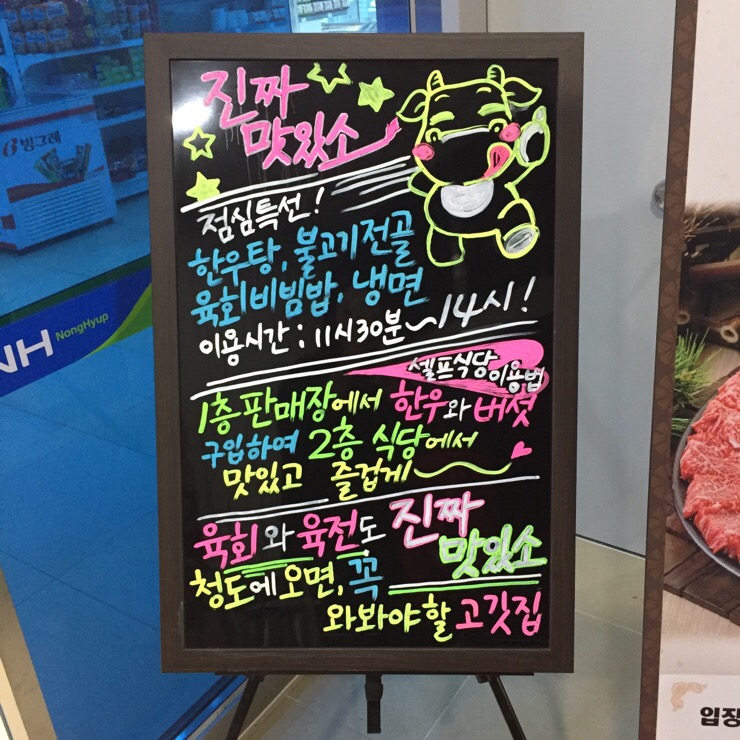 진짜
맛있소
점심특선!
한우탕, 불고기전골
육회비빔밥, 냉면
이용시간 : 11시30분~14시!
셀프식당
이용법
1층 판매장에서 한우와 버섯
구입하여 2층 식당에서
맛있고 즐겁게
육회와 육전도 진짜
맛있소
청도에 오면, 꼭
와봐야할 고깃집
빙그레
NH NongHyup
입장